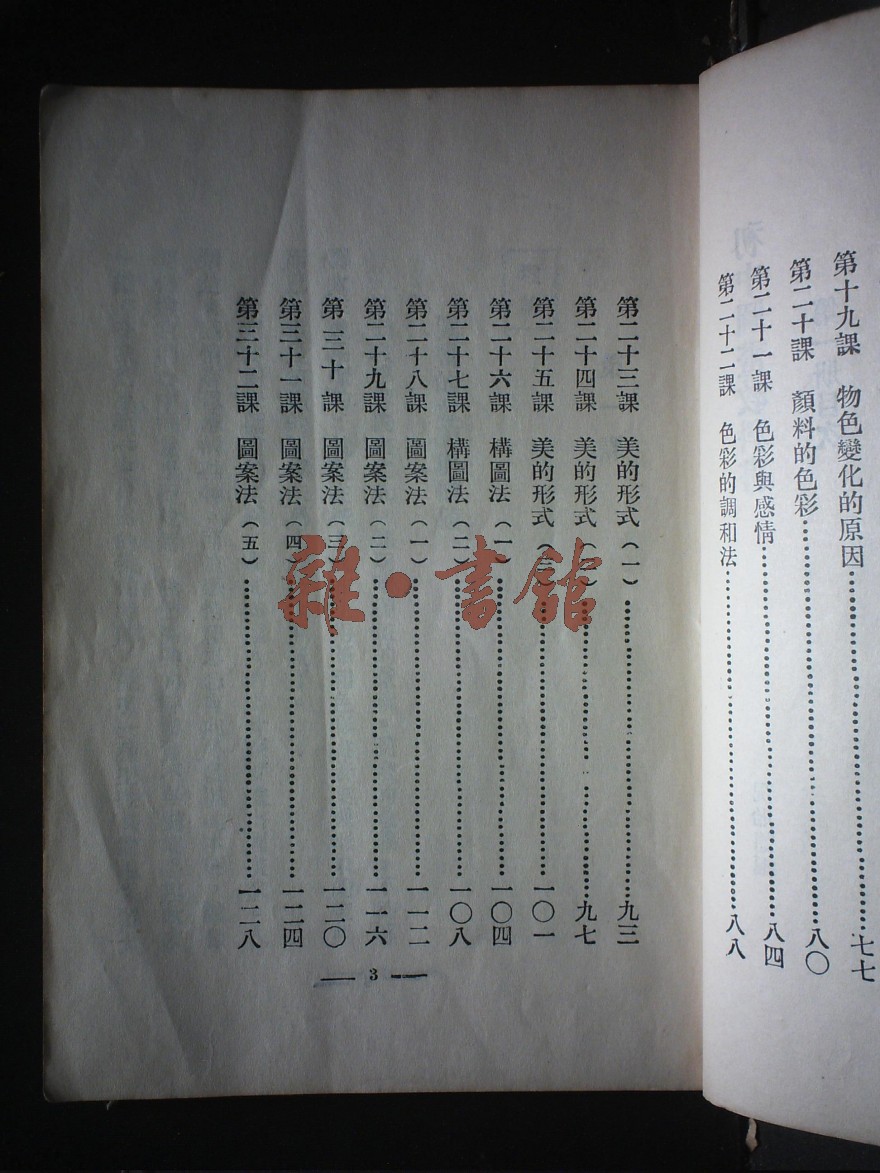 第十九課　物色變化的原因……七七
第二十課　顏料的色彩……八〇
第二十一課　色彩與感情……八四
第二十二課　色彩的調和法……八八
第二十三課　美的形式（一）……九三
第二十四課　美的形式（二）……九七
第二十五課　美的形式（三）……一〇一
第二十六課　構圖法（一）……一〇四
第二十七課　構圖法（二）……一〇八
第二十八課　圖案法（一）……一一二
第二十九課　圖案法（二）……一一六
第三十課　圖案法（三）……一二〇
第三十一課　圖案法（四）……一二四
第三十二課　圖案法（五）……一二八
3
雜·書館